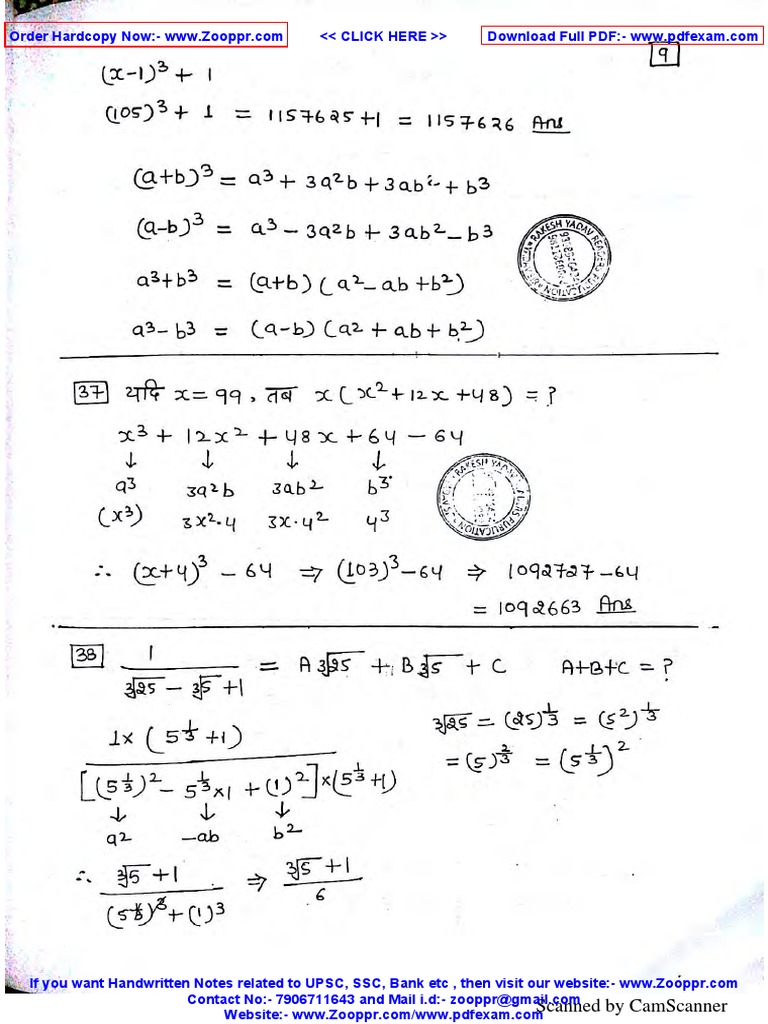 Order Hardcopy Now:- www.Zooppr.com << CLICK HERE >> Download Full PDF:- www.pdfexam.com
9
(x-1)³ + 1
(105)³ + 1 = 1157625+1 = 1157626 Ans
(a+b)³ = a³ + 3a²b + 3ab² + b³
(a-b)³ = a³ - 3a²b + 3ab² - b³
a³+b³ = (a+b) (a² - ab + b²)
a³-b³ = (a-b) (a² + ab + b²)
RAKESH YADAV READERS PUBLICATION
37 यदि x = 99, तब x(x² + 12x + 48) = ?
x³ + 12x² + 48x + 64 - 64
↓ ↓ ↓ ↓
a³ 3a²b 3ab² b³
(x³) 3x²·4 3x·4² 4³
∴ (x+4)³ - 64 ⇒ (103)³ - 64 ⇒ 1092727 - 64
= 1092663 Ans
RAKESH YADAV
38 1/(∛25 - ∛5 + 1) = A∛25 + B∛5 + C A+B+C = ?
∛25 = (25)^(1/3) = (5²)^(1/3)
= (5)^(2/3) = (5^(1/3))²
1 × (5^(1/3) + 1)
[(5^(1/3))² - 5^(1/3) × 1 + (1)²] × (5^(1/3) + 1)
↓ ↓ ↓
a² -ab b²
∴ (∛5 + 1)/((5^(1/3))³ + (1)³) ⇒ (∛5 + 1)/6
If you want Handwritten Notes related to UPSC, SSC, Bank etc , then visit our website:- www.Zooppr.com
Contact No:- 7906711643 and Mail i.d:- zooppr@gmail.com
Scanned by CamScanner
Website:- www.Zooppr.com/www.pdfexam.com